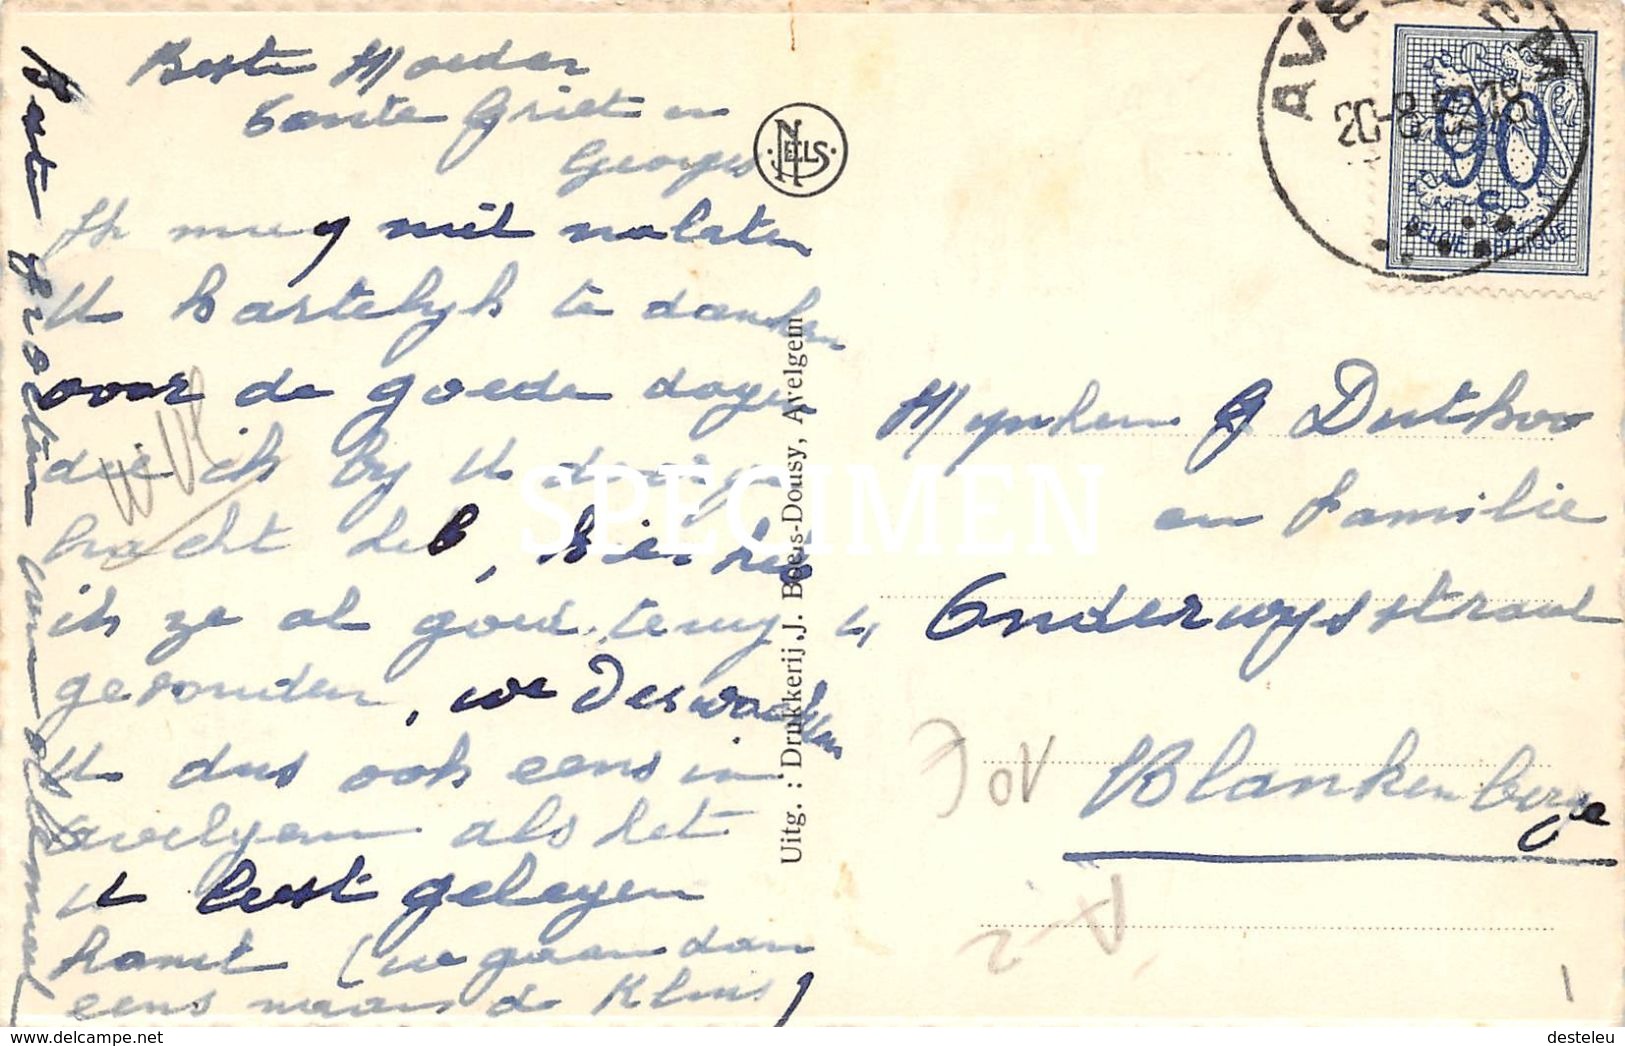 Beste Moeder
Tante Griet en
Georges
Ik mag niet nalaten
U hartelijk te danken
voor de goede dagen
die ik by U doorge
bracht heb, hier heb
ik ze al goed, terug
gevonden, we verwachten
U dus ook eens in
avelgem als het
U best gelegen
komt (we gaan dan
eens naar de Kluis)
Beste groeten van allemaal
NELS
Uitg. : Drukkerij J. Boels-Dousy, Avelgem
AVELGEM
20-8
18
90
c
BELGIE BELGIQUE
Mynheer G Duthoo
en Familie
4, Onderwysstraat
Blankenberge
SPECIMEN
A-2
delcampe.net
desteleu